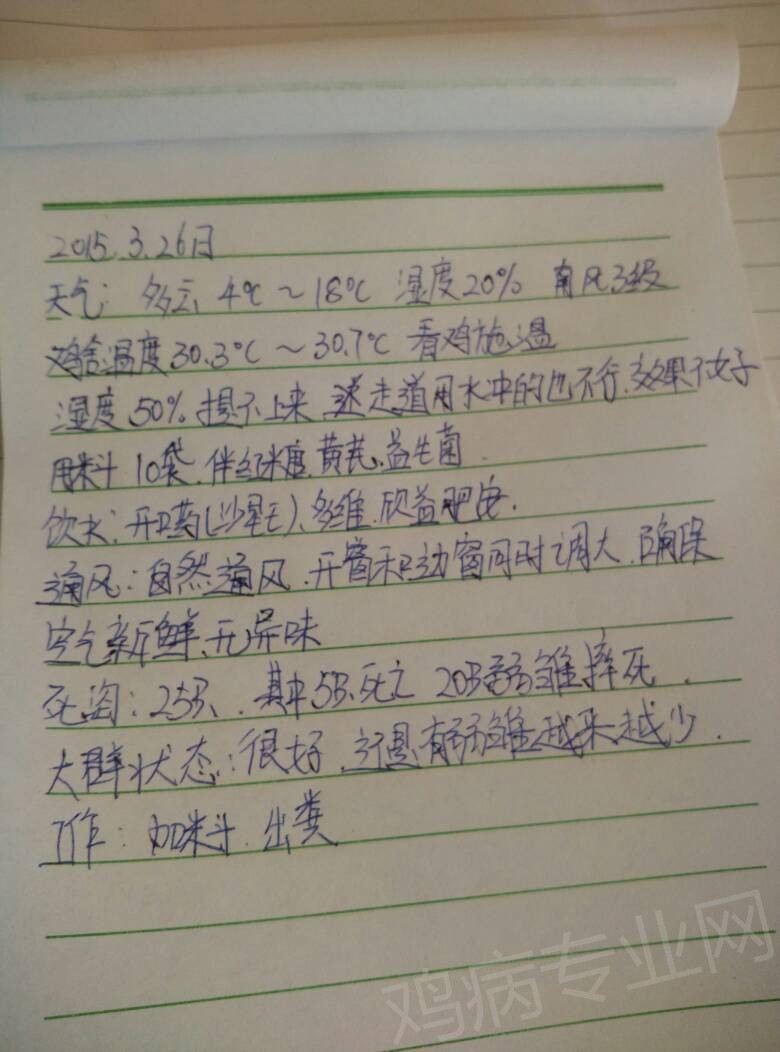 2015.3.26日
天气: 多云 4℃～18℃ 湿度20% 南风3级
鸡舍温度30.3℃～30.7℃ 看鸡施温
湿度50% 提不上来 走道用水冲的也不行.效果不好
用料10袋.伴红糖.黄芪.益生菌.
饮水:开口药(沙星王).多维.欣益肥安.
通风:自然通风.开窗和动窗同时调大.确保
空气新鲜.无异味
死淘:25只.其中5只死亡 20只弱雏摔死.
大群状态:很好.还是有弱雏越来越少.
工作:加料.出粪
鸡病专业网